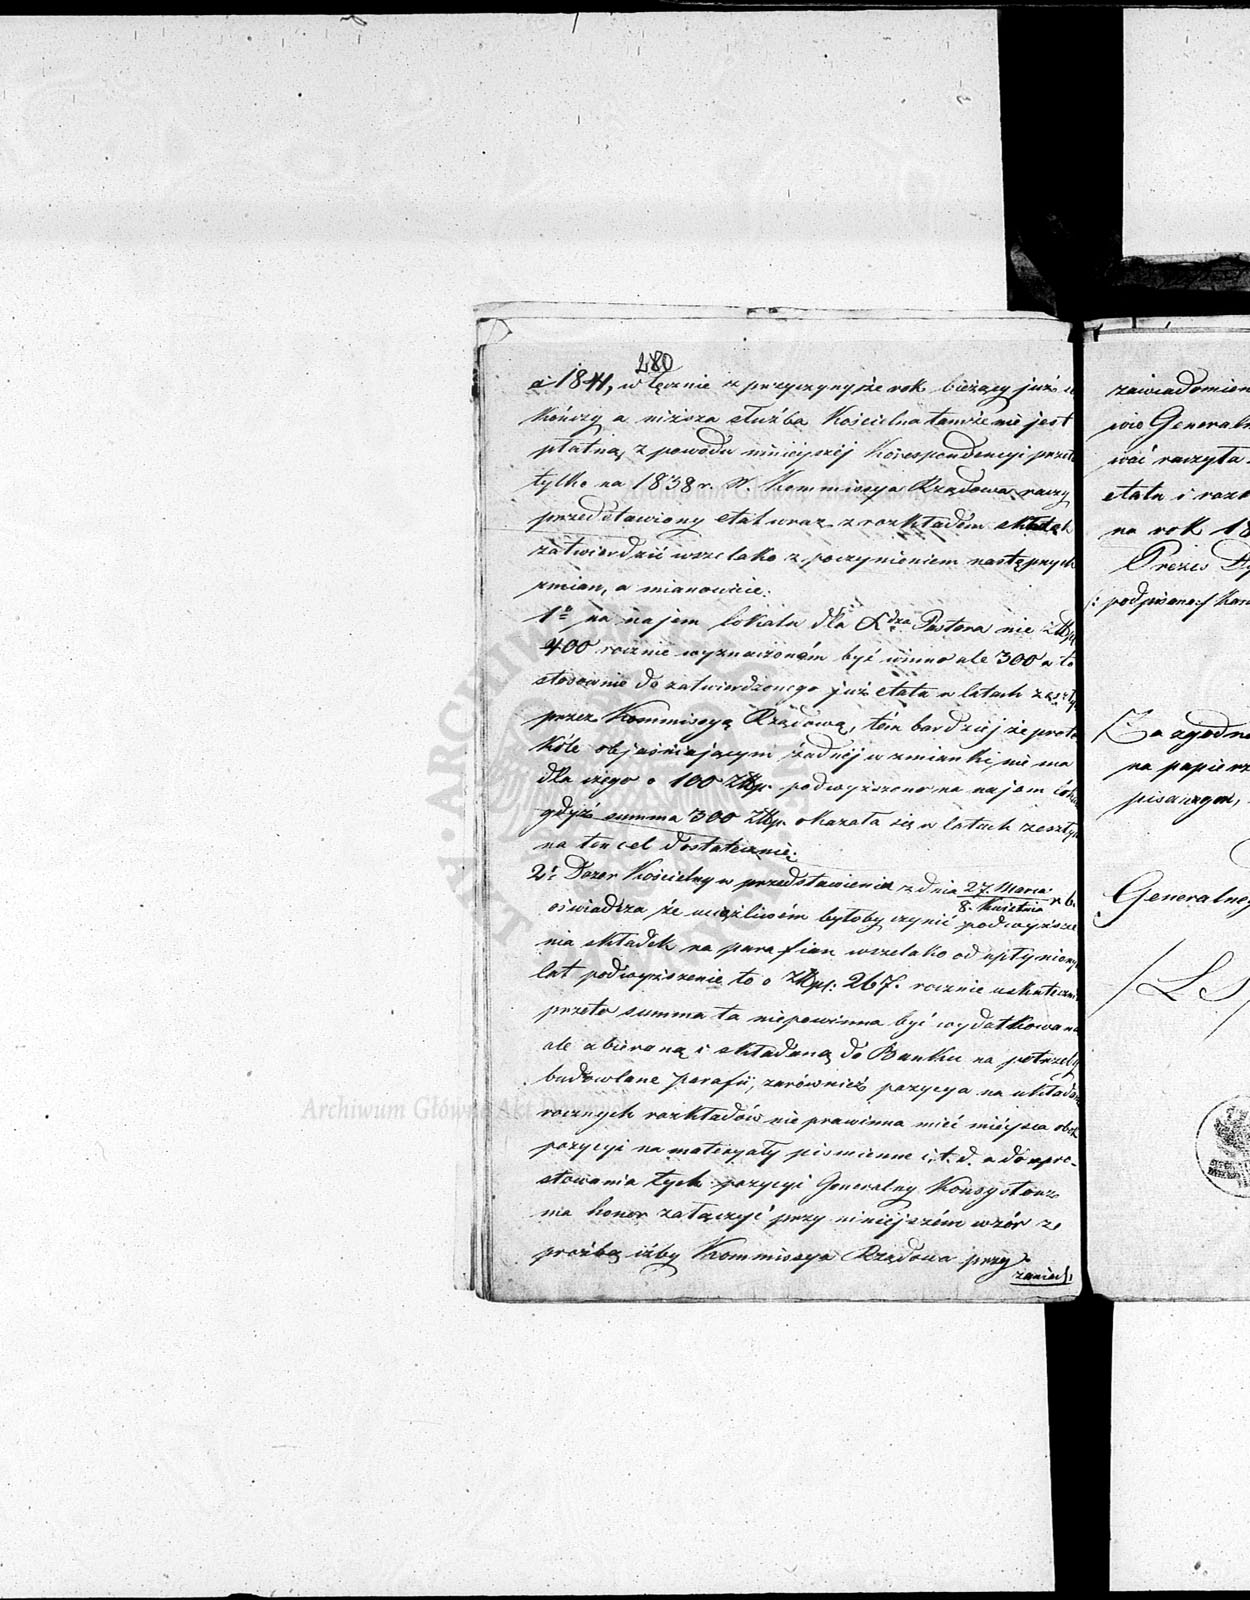 280
a 1841, włącznie z przyczyny że rok bieżący już się
kończy a niższa służba Kościelna tamże nie jest
płatną z powodu niniejszej Korespondencyi przeto
tylko na 1838 r. W. Kommissya Rządowa raczy
przedstawiony etat wraz z rozkładem składek
zatwierdzić wszelako z poczynieniem następnych
zmian, a mianowicie:
1o na najem lokalu dla Xdza Pastora nie Złp.
400 rocznie wyznaczonem być winno ale 300 a to
stosownie do zatwierdzonego już etatu w latach zeszły
przez Kommissyą Rządową, tém bardziej że proto
kóle objaśniającym żadnéj wzmianki nie ma
dla czego o 100 Złp. podwyższono na najem loka
gdyż summa 300 Złp. okazała się w latach zeszłyc
na ten cel dostatecznie;
2o Dozor Kościelny w przedstawieniu z dnia 27. Marca / 8. Kwietnia r. b.
oświadcza że uciążliwém byłoby czynić podwyższe
nia składek na parafian wszelako od upłyniony
lat podwyższenie to o Złp: 267. rocznie uskuteczni
przeto summa ta niepowinna być wydatkowana
ale zbieraną i składaną do Banku na potrzeby
budowlane parafii, zarównież pozycya na układan
rocznych rozkładów nie prawinna mieć miejsca obok
pozycyi na materyały piśmienne i. t. d. a do spro-
stowania tych pozycyi Generalny Konsystorz
ma honor załączyć przy niniejszém wzór z
proźbą iżby Kommissya Rządowa przy
zaniech.
zawiadomien
wio Generaln
wać raczyła
etatu i rozk
na rok 18
Prezes Dy
/: podpisano:/
Za zgodn
na papierz
pisanym,
Generalneg
/L S/
ARCHIWUM GŁÓWNE AKT DAWNYCH
Archiwum Główne Akt Dawnych